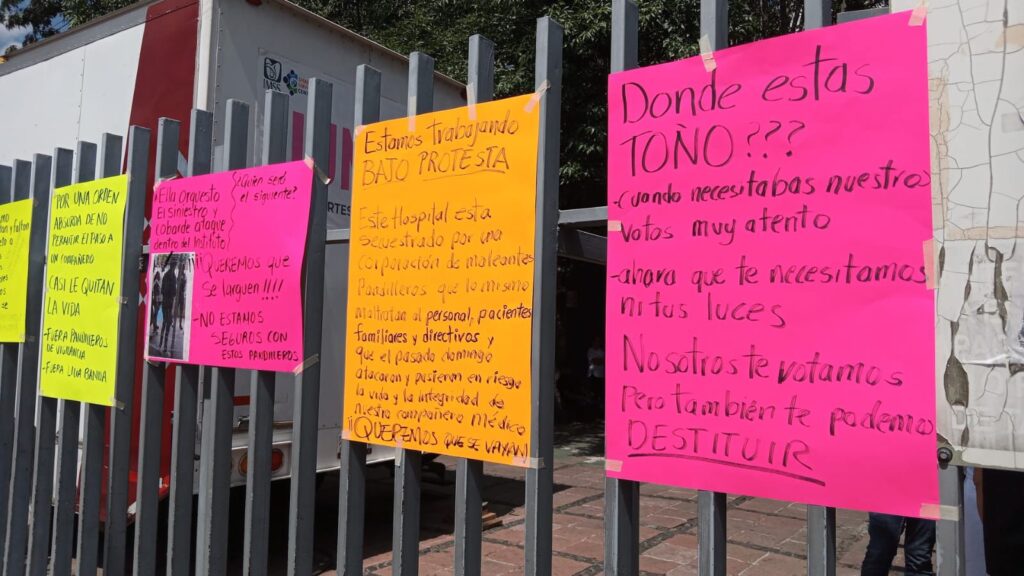 POR UNA ORDEN
ABSURDA DE NO
PERMITIR EL PASO A
UN COMPAÑERO
CASI LE QUITAN
LA VIDA
-FUERA PANDILLEROS
DE VIGILANCIA
-FUERA LIDIA BANDA
Ella orquesto
El Siniestro y
Cobarde ataque
dentro del Instituto
¿Quien será
el siguiente?
¡¡QUEREMOS que
Se larguen!!!!
-NO ESTAMOS
SEGUROS CON
estos PANDILLEROS
IMSS
Estamos trabajando
BAJO PROTESTA
Este Hospital esta
Secuestrado por una
corporación de maleantes
Pandilleros que lo mismo
maltratan al personal, pacientes
familiares y directivos y
que el pasado domingo
atacaron y pusieron en riesgo
la vida y la integridad de
nuestro compañero médico
¡¡QUEREMOS QUE SE VAYAN!
Donde estas
TOÑO???
-Cuando necesitabas nuestros
votos muy atento
-ahora que te necesitamos
ni tus luces
Nosotros te votamos
Pero también te podemos
DESTITUIR